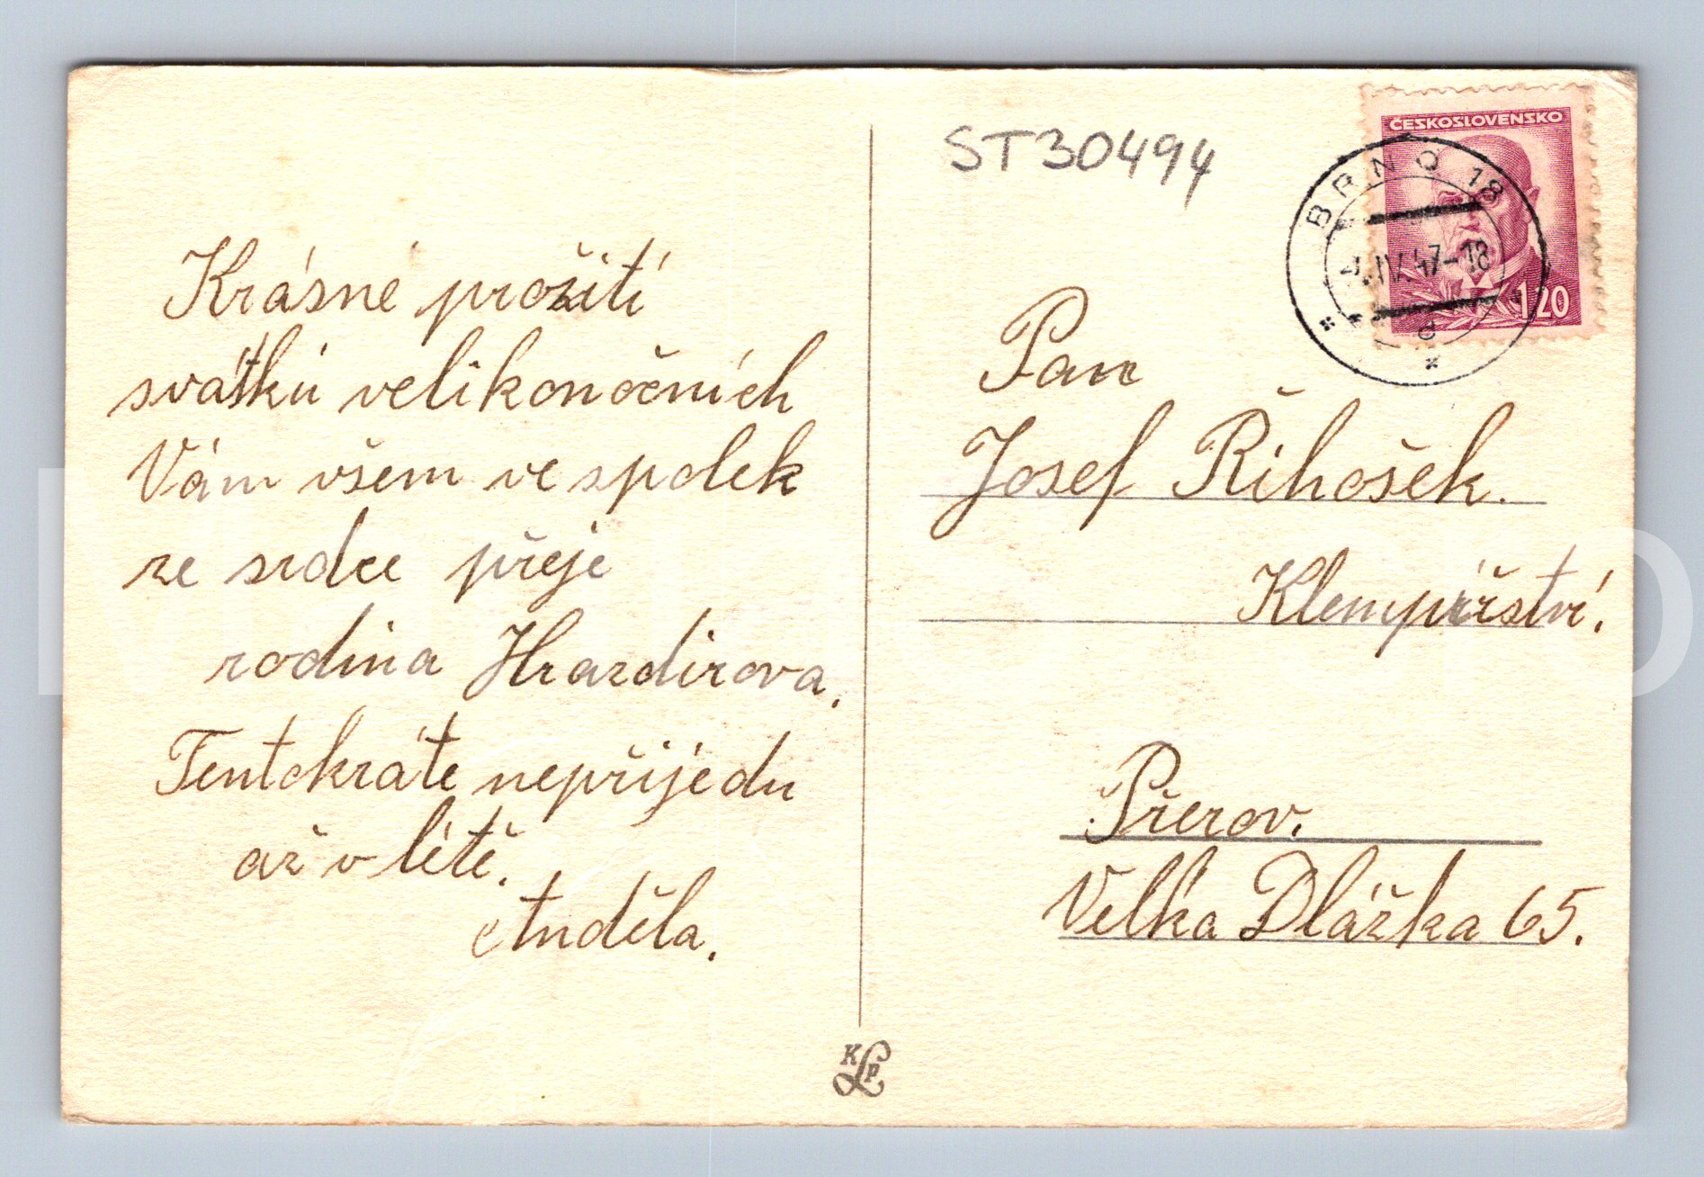 Krásné prožití
svátků velikonočních
Vám všem ve spolek
ze srdce přeje
rodina Hrazdirova.
Tentokráte nepřijedu
až v létě.
Anděla.
ST30494
ČESKOSLOVENSKO
1.20
BRNO 18
.IV.47-18
d
Pan
Josef Řihošek.
Klempířství.
Přerov.
Velká Dlážka 65.
KLP